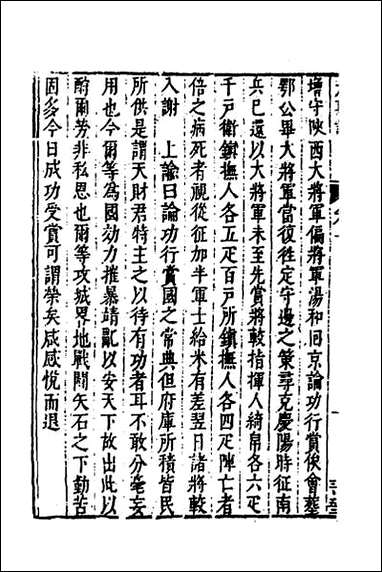 增守陝西大將軍偏將軍湯和囘京論功行賞俟會塟
鄂公畢大將軍當復徃定守邊之策尋克慶陽時征南
兵巳還以大將軍未至先賞將較指揮人綺帛各六疋
千戸衛鎮撫人各五疋百戸所鎮撫人各四疋陣亡者
倍之病死者視從征加半軍士給米有差翌日諸將較
入謝　上諭曰論功行賞國之常典但府庫所積皆民
所供是謂天財君特主之以待有功者耳不敢分毫妄
用也今爾等為國効力摧暴靖亂以安天下故出此以
酧爾勞非私恩也爾等攻城畧地戰鬬矢石之下勤苦
因多今日成功受賞可謂榮矣咸感悅而退